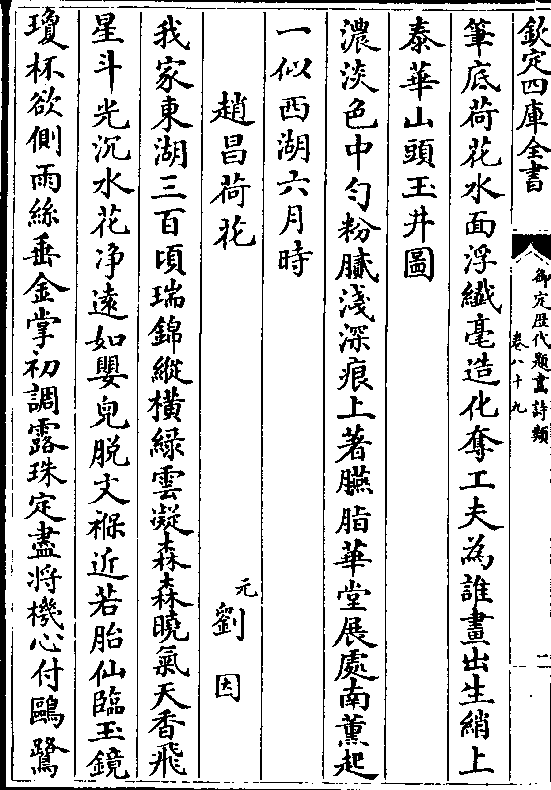 欽定四庫全書
御定歴代題畫詩類
卷八十九
二
筆底荷花水面浮纎毫造化奪工夫為誰畫出生綃上
泰華山頭玉井圖
濃淡色中勻粉膩淺深痕上著臙脂華堂展處南薰起
一似西湖六月時
趙昌荷花
元劉因
我家東湖三百頃瑞錦縱橫綠雲凝森森曉氣天香飛
星斗光沉水花净遠如嬰兒脱文褓近若胎仙臨玉鏡
瓊杯欲側雨絲垂金掌初調露珠定盡將機心付鷗鷺